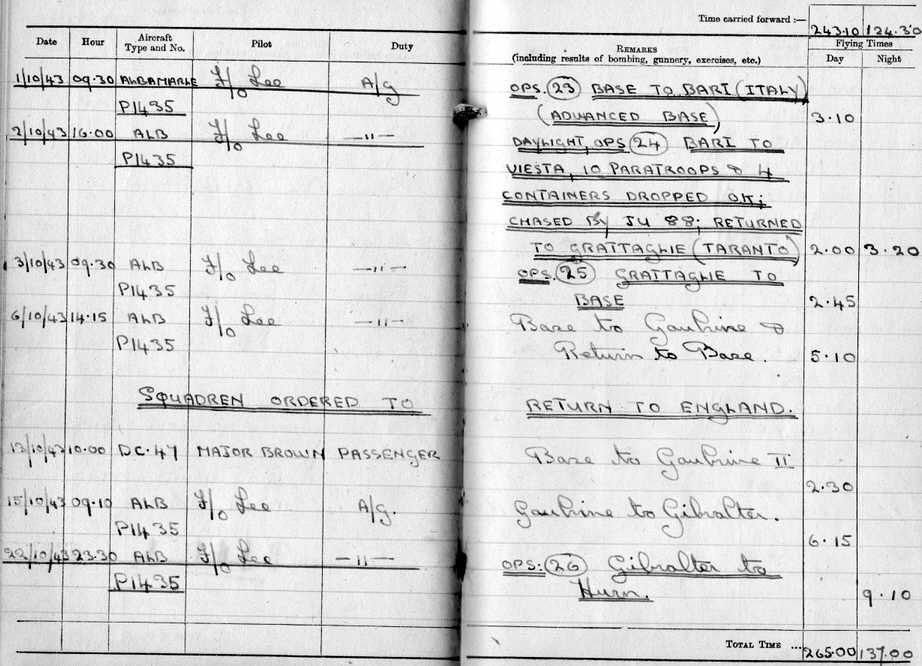 Time carried forward :— 243.10 124.30
Date Hour Aircraft Type and No. Pilot Duty REMARKS (including results of bombing, gunnery, exercises, etc.) Flying Times Day Night
1/10/43 09.30 ALBAMARLE F/O Lee A/g OPS. 23 BASE TO BARI (ITALY)
P1435 (ADVANCED BASE) 3.10
2/10/43 16.00 ALB F/O Lee —"— DAYLIGHT, OPS 24 BARI TO
P1435 VIESTA, 10 PARATROOPS & 4
CONTAINERS DROPPED OK;
CHASED By JU 88; RETURNED
TO GRATTAGLIE (TARANTO) 2.00 3.20
3/10/43 09.30 ALB F/O Lee —"— OPS. 25 GRATTAGLIE TO
P1435 BASE 2.45
6/10/43 14.15 ALB F/O Lee —"— Base to Gaubine &
P1435 Return to Base. 5.10
SQUADREN ORDERED TO RETURN TO ENGLAND.
13/10/43 10.00 DC.47 MAJOR BROWN PASSENGER Base to Gaubine II
2.30
15/10/43 09.10 ALB F/O Lee A/g. Gaubine to Gibralter.
P1435 6.15
22/10/43 23.30 ALB F/O Lee —"— OPS: 26 Gibralter to
P1435 Hurn. 9.10
TOTAL TIME ... 265.00 137.00